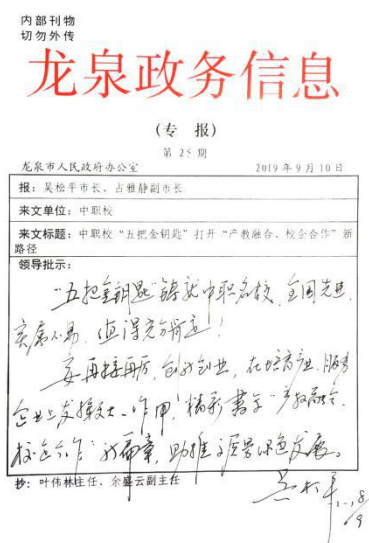 内部刊物
切勿外传
龙泉政务信息
(专 报)
第 25 期
龙泉市人民政府办公室 2019年9月10日
报：吴松平市长、占雅静副市长
来文单位：中职校
来文标题：中职校“五把金钥匙”打开“产教融合、校企合作”新
路径
领导批示：
“五把金钥匙”铸就中职名校，全国先进，
实属不易，值得充分肯定！
要再接再厉，创新创业，在培育产业、服务
企业上发挥更大作用！精彩书写“产教融合、
校企合作”新篇章，助推 绿色发展。
抄：叶伟林主任、余盛云副主任
吴松平
18/9